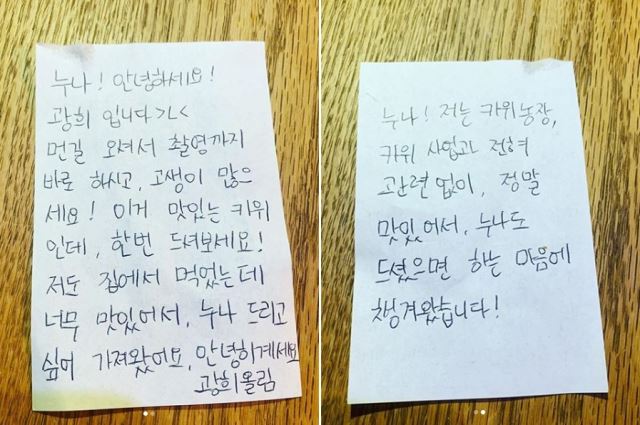 누나! 안녕하세요!
광희 입니다 >L<
먼길 오셔서 촬영까지
바로 하시고, 고생이 많으
세요! 이거 맛있는 키위
인데, 한번 드셔보세요!
저도 집에서 먹었는데
너무 맛있어서, 누나 드리고
싶어 가져왔어요, 안녕히계세요
광희올림
누나! 저는 키위농장,
키위 사업과 전혀
관련없이, 정말
맛있어서, 누나도
드셨으면 하는 마음에
챙겨왔습니다!